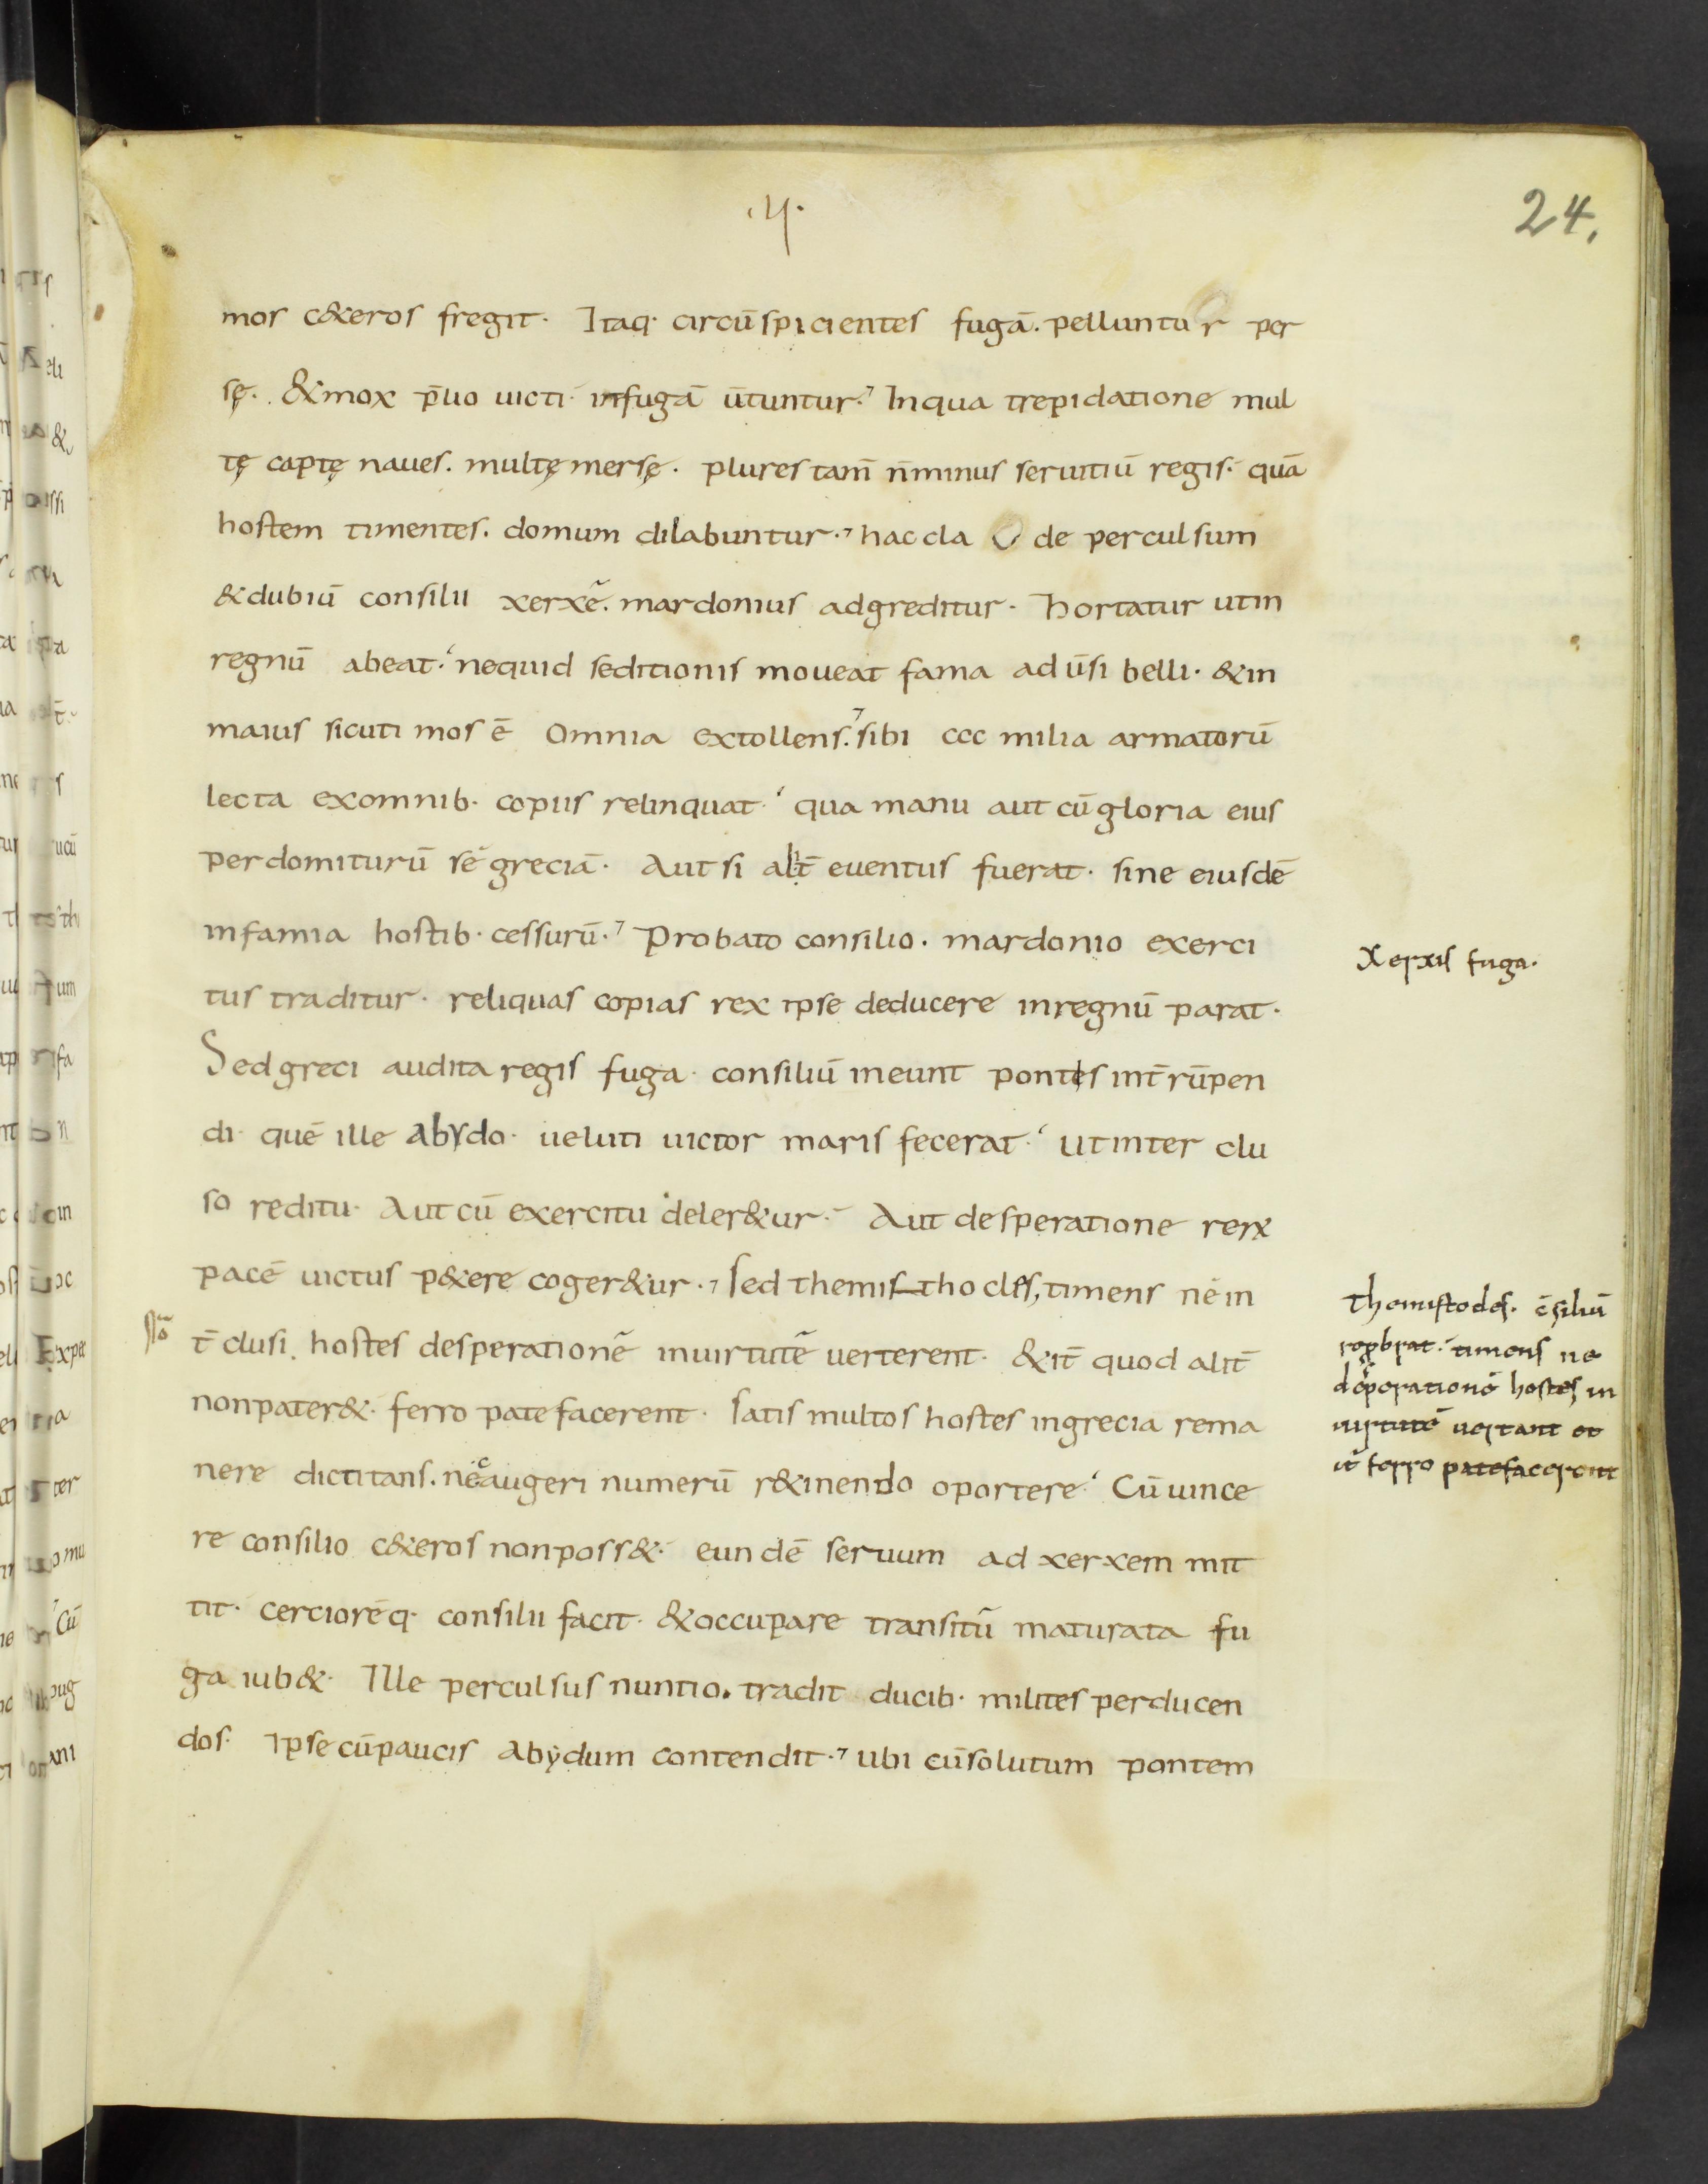 .4.
24.
mos c&eros fregit. Itaq. circū spicientes fugā. pelluntur per
sę. & mox p̄lio uicti infugā ūtuntur. Inqua trepidatione mul
tę captę naues. multę mersę. plures tam̄ n̄minus seruitiū regis. quā
hostem timentes. domum dilabuntur. hac cla de perculsum
& dubiū consilii xerxē. mardonius adgreditur. hortatur utin
regnū abeat. nequid seditionis moueat fama ad ūsi belli. & in
maius sicuti mos ē omnia extollens. sibi ccc milia armatorū
lecta exomnib. copiis relinquat. qua manu aut cū gloria eius
perdomiturū sé greciā. Aut si alit̄ euentus fuerat. sine eiusdē
infamia hostib. cessurū. Probato consilio. mardonio exerci
tus traditur. reliquas copias rex ipse deducere inregnū parat.
Sed greci audita regis fuga. consiliū ineunt pontis int̄rūpen
di. quē ille abydo. ueluti uictor maris fecerat. ut inter clu
so reditu. Aut cū exercitu deler&ur. Aut desperatione rerx
pacē uictus p&ere coger&ur. sed themisthocles, timens né in
t̄ clusi. hostes desperationē inuirtutē uerterent. & it̄ quod alit̄
nonpater&. ferro patefacerent. satis multos hostes ingrecia rema
nere dictitans. nec augeri numerū r&inendo oportere. Cū uince
re consilio c&eros nonposs&. eundē seruum ad xerxem mit
tit. cerciorēq. consilii facit. & occupare transitū maturata fu
ga iub&. Ille perculsus nuntio. tradit ducib. milites perducen
dos. Ipse cūpaucis abydum contendit. ubi cūsolutum pontem
Xerxis fuga.
Themistocles. c̄siliū
timens ne
desperationē hostes in
uirtutē uertant et
it̄ ferro patefacerent